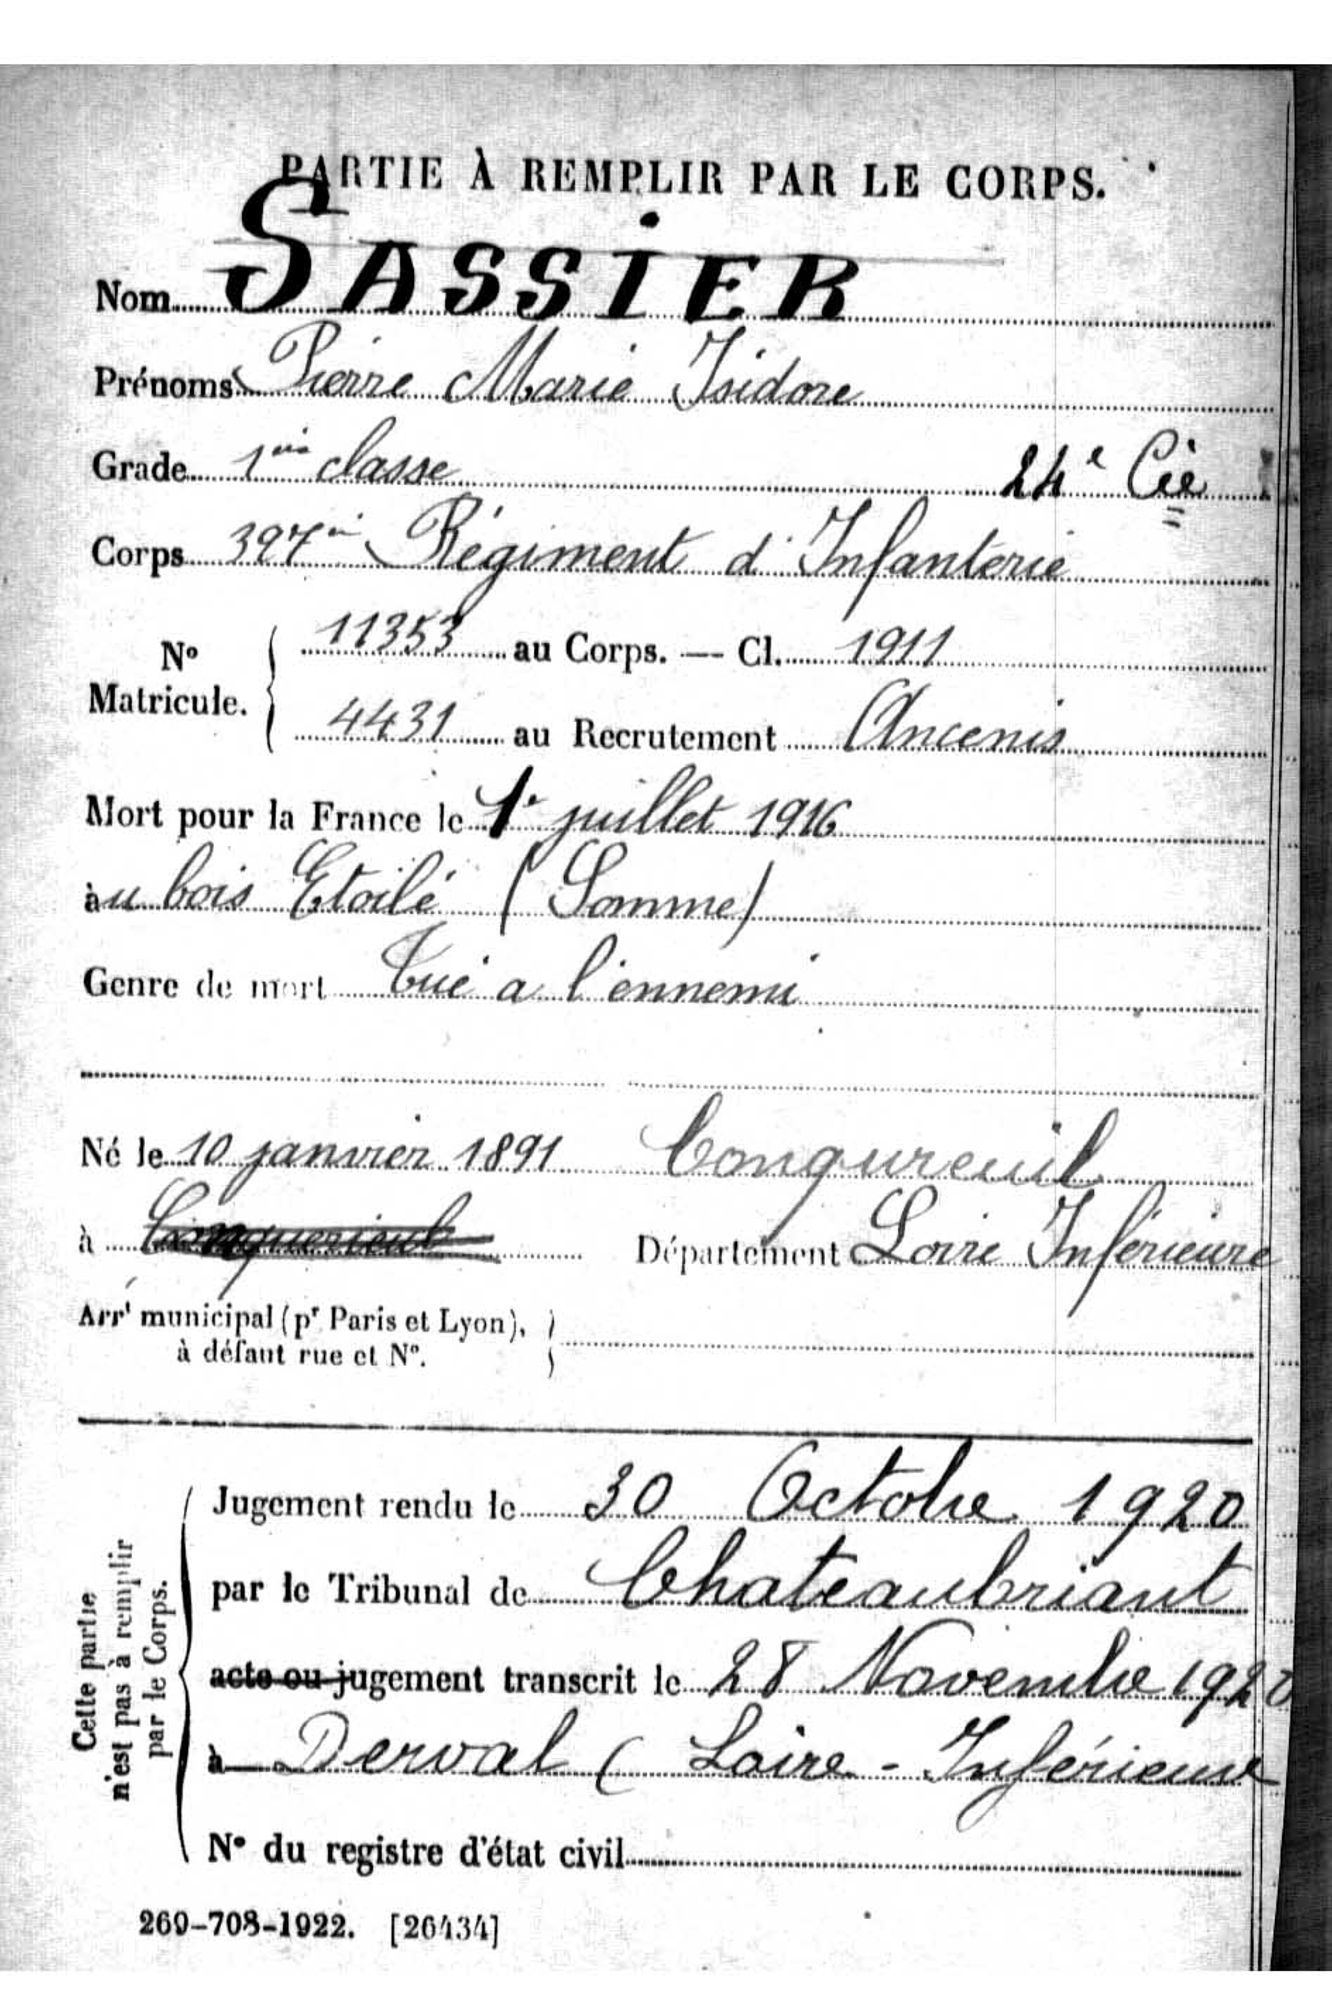 PARTIE À REMPLIR PAR LE CORPS.
Nom SASSIER
Prénoms Pierre Marie Isidore
Grade 1ère classe 24e Cie
Corps 327e Régiment d'Infanterie
No Matricule. 11353 au Corps. — Cl. 1911
4431 au Recrutement Ancenis
Mort pour la France le 1er juillet 1916
au bois Etoilé (Somme)
Genre de mort Tué a l'ennemi
Né le 10 janvier 1891 Conguereuil
à Département Loire Inférieure
Arrt municipal (pr Paris et Lyon),
à défaut rue et No.
Cette partie
n'est pas à remplir
par le Corps.
Jugement rendu le 30 Octobre 1920
par le Tribunal de Chateaubriant
acte ou jugement transcrit le 28 Novembre 1920
à Derval (Loire-Inférieure
No du registre d'état civil
269-708-1922. [26434]